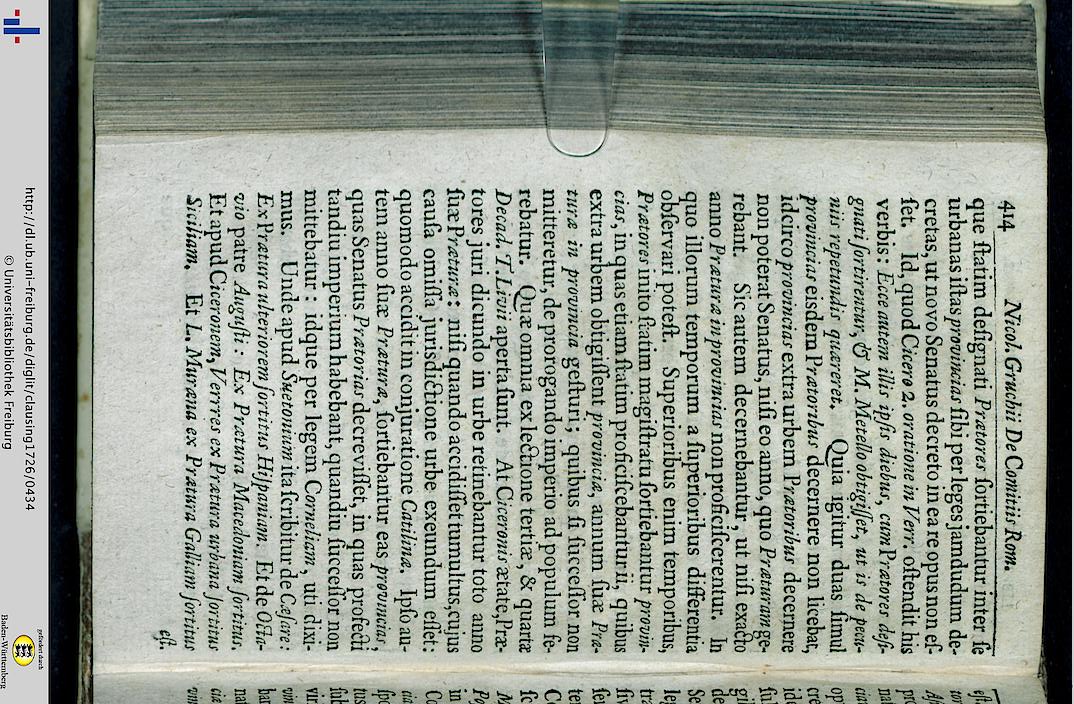 414 Nicol. Gruchii De Comitiis Rom.
que ſtatim deſignati Prætores ſortiebantur inter ſe
urbanas iſtas provincias ſibi per leges jamdudum de-
cretas, ut novo Senatus decreto in ea re opus non eſ-
ſet. Id, quod Cicero 2. oratione in Verr. oſtendit his
verbis: Ecce autem illis ipſis diebus, cum Prætores deſi-
gnati ſortirentur, & M. Metello obtigiſſet, ut is de pecu-
niis repetundis quæreret. Quia igitur duas ſimul
provincias eisdem Prætoribus decernere non licebat,
idcirco provincias extra urbem Prætoribus decernere
non poterat Senatus, niſi eo anno, quo Præturam ge-
rebant. Sic autem decernebantur, ut niſi exacto
anno Præturæ in provincias non proficiſcerentur. In
quo illorum temporum a ſuperioribus differentia
obſervari poteſt. Superioribus enim temporibus,
Prætores inito ſtatim magiſtratu ſortiebantur provin-
cias, in quas etiam ſtatim proficiſcebantur ii, quibus
extra urbem obtigiſſent provinciæ, annum ſuæ Præ-
turæ in provincia geſturi; quibus ſi ſucceſſor non
mitteretur, de prorogando imperio ad populum fe-
rebatur. Quæ omnia ex lectione tertiæ, & quartæ
Decad. T. Livii aperta ſunt. At Ciceronis ætate, Præ-
tores juri dicundo in urbe retinebantur toto anno
ſuæ Præturæ: niſi quando accidiſſet tumultus, cujus
cauſa omiſſa jurisdictione urbe exeundum eſſet:
quomodo accidit in conjuratione Catilinæ. Ipſo au-
tem anno ſuæ Præturæ, ſortiebantur eas provincias,
quas Senatus Prætorias decreviſſet, in quas profecti
tandiu imperium habebant, quandiu ſucceſſor non
mittebatur: idque per legem Corneliam, uti dixi-
mus. Unde apud Suetonium ita ſcribitur de Cæſare:
Ex Prætura ulteriorem ſortitus Hiſpaniam. Et de Octa-
vio patre Auguſti: Ex Prætura Macedoniam ſortitus.
Et apud Ciceronem, Verres ex Prætura urbana ſortitus
Siciliam. Et L. Muræna ex Prætura Galliam ſortitus
eſt.
http://dl.ub.uni-freiburg.de/diglit/clausing1726/0434
© Universitätsbibliothek Freiburg
gefördert durch
Baden-Württemberg